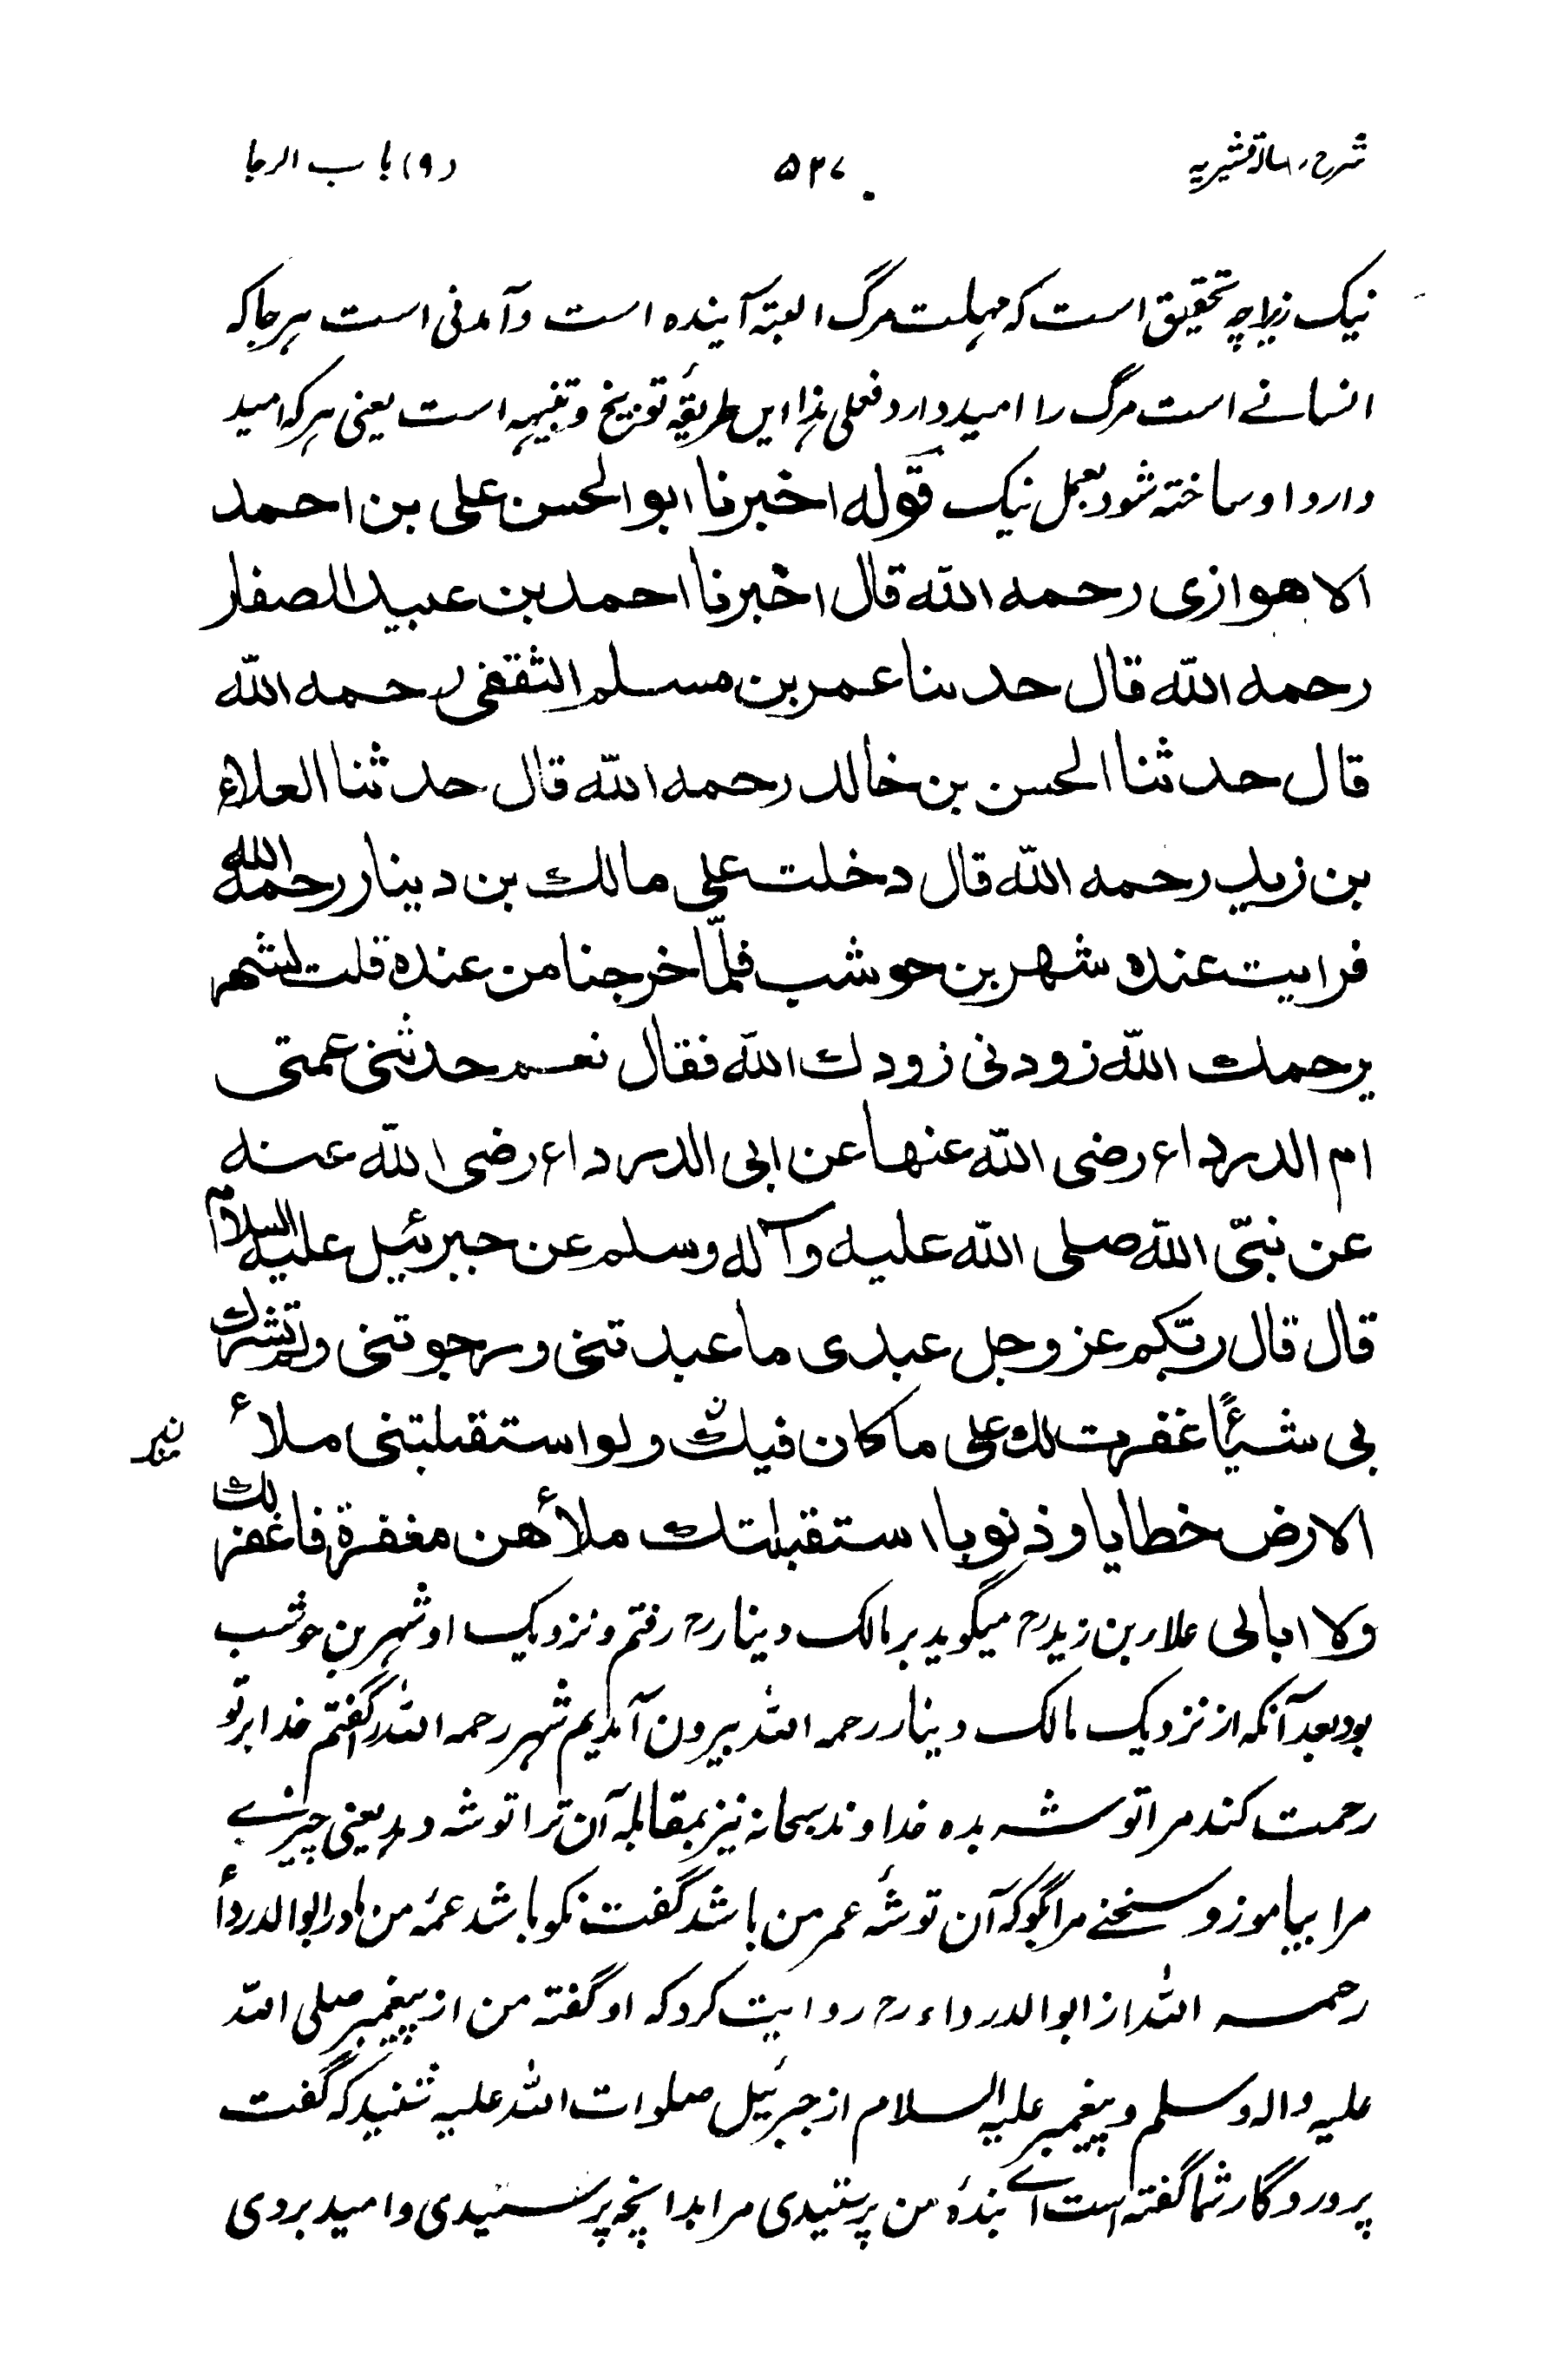 شرح رسالۂ قشیریہ ۵۲۷ (۹) باب الرجا
نیک زیراچہ تحقیق است کہ مہلت مرگ البتہ آیندہ است وآمدنی است ہرجا کہ
انسانے است مرگ را امید دارد فعلی ہذا ایں طریقۂ توبیخ و تنبیہہ است یعنی ہر کہ امید
دارد او ساختہ شود بعمل نیک قوله اخبرنا ابوالحسن علی بن احمد
الاهوازی رحمه الله قال اخبرنا احمد بن عبید الصفار
رحمه الله قال حدثنا عمر بن مسلم الثقفی رحمه الله
قال حدثنا الحسن بن خالد رحمه الله قال حدثنا العلاء
بن زید رحمه الله قال دخلت علی مالك بن دینار رحمه الله
فرایت عنده شهر بن حوشب فلمّا خرجنا من عنده قلت لشهر
یرحمك الله زودنی زودك الله فقال نعم حدثنی عمتی
ام الدرداء رضی الله عنها عن ابی الدرداء رضی الله عنه
عن نبیّ الله صلی الله علیه وآله وسلم عن جبرئیل علیه السلام
قال قال ربّکم عز وجل عبدی ما عبدتنی ورجوتنی ولم تشرك
بی شیئًا غفرت لك علی ما کان فیك ولو استقبلتنی ملأ
الارض خطایا وذنوبا استقبلتك ملأهن مغفرة فاغفر لك
ولا ابالی علاء بن زیدؒ میگوید بر مالک دینارؒ رفتم و نزدیک او شہر بن حوشب
بود بعد آنکہ از نزدیک مالک دینار رحمہ اللہ بیرون آمدیم شہر رحمہ اللہ را گفتم خدا بر تو
رحمت کند مرا توشہ بدہ خداوند سبحانہ نیز بمقابلہ آن ترا توشہ دہد یعنی چیزے
مرا بیاموز و سخنے مرا بگو کہ آن توشۂ عمر من باشد گفت نکو باشد عمۂ من مادر ابوالدرداء
رحمہ اللہ از ابوالدرداءؒ روایت کرد کہ او گفتہ من از پیغمبر صلی اللہ
علیہ والہ وسلم و پیغمبر علیہ السلام از جبرئیل صلوات اللہ علیہ شنید کہ گفت
پروردگار شما گفتہ است اے بندۂ من پرستیدی مرا بدانچہ پرستیدی و امید بردی